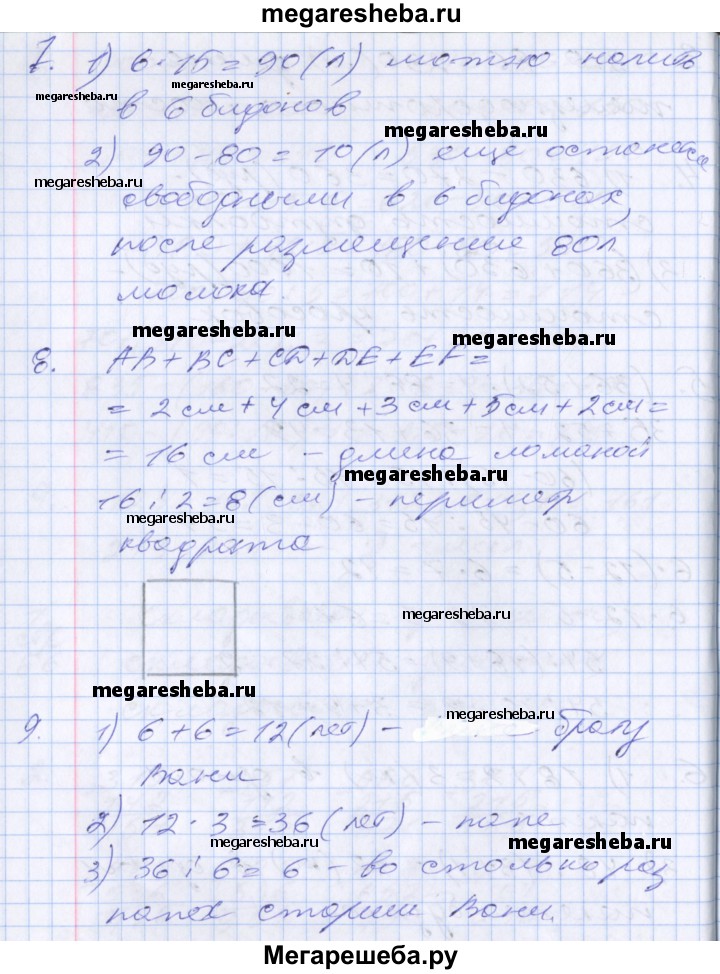 megaresheba.ru
7. 1) 6 · 15 = 90 (л) можно налить
megaresheba.ru megaresheba.ru
в 6 бидонов
megaresheba.ru
2) 90 - 80 = 10 (л) еще останется
megaresheba.ru
свободными в 6 бидонах,
после размещение 80 л
молока.
megaresheba.ru megaresheba.ru
8. AB + BC + CD + DE + EF =
= 2 см + 4 см + 3 см + 5 см + 2 см =
= 16 см - длина ломаной
megaresheba.ru
16 : 2 = 8 (см) - периметр
megaresheba.ru
квадрата
megaresheba.ru
megaresheba.ru
megaresheba.ru
9. 1) 6 + 6 = 12 (лет) - брату
Вани
2) 12 · 3 = 36 (лет) - папе
megaresheba.ru megaresheba.ru
3) 36 : 6 = 6 - во столько раз
папа старше Вани.
Мегарешеба.ру